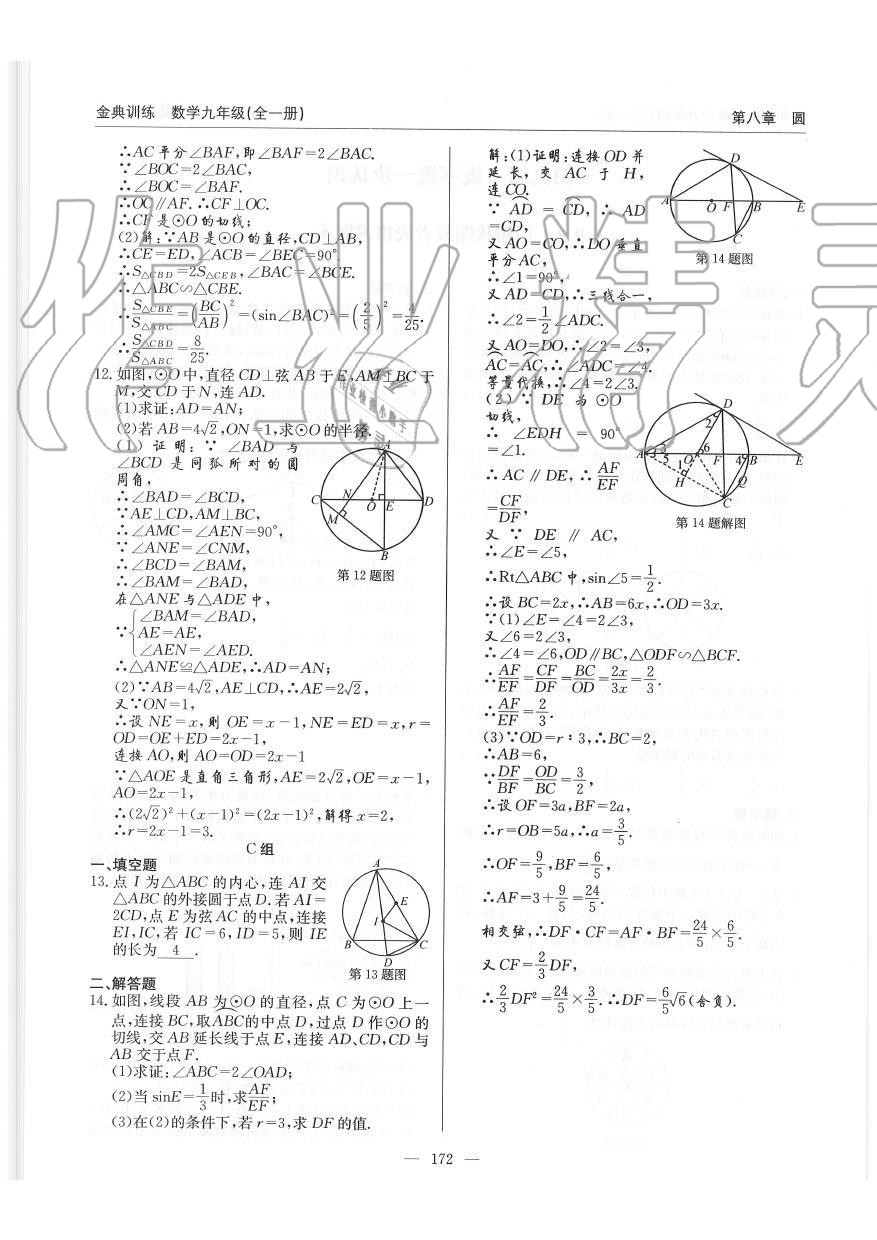 金典训练 数学九年级(全一册)
第八章 圆
∴AC平分∠BAF,即∠BAF=2∠BAC.
∵∠BOC=2∠BAC,
∴∠BOC=∠BAF.
∴OC∥AF.∴CF⊥OC.
∴CF是⊙O的切线;
(2)解:∵AB是⊙O的直径,CD⊥AB,
∴CE=ED,∠ACB=∠BEC=90°.
∴S△CBD=2S△CEB,∠BAC=∠BCE.
∴△ABC∽△CBE.
∴S△CBE/S△ABC=(BC/AB)²=(sin∠BAC)²=(2/5)²=4/25.
∴S△CBD/S△ABC=8/25.
12.如图,⊙O中,直径CD⊥弦AB于E,AM⊥BC于
M,交CD于N,连AD.
(1)求证:AD=AN;
(2)若AB=4√2,ON=1,求⊙O的半径.
(1)证明:∵∠BAD与
∠BCD是同弧所对的圆
周角,
∴∠BAD=∠BCD,
∵AE⊥CD,AM⊥BC,
∴∠AMC=∠AEN=90°,
∵∠ANE=∠CNM,
∴∠BCD=∠BAM,
∴∠BAM=∠BAD,
在△ANE与△ADE中,
∵{∠BAM=∠BAD,
AE=AE,
∠AEN=∠AED.
A
C
N
O
E
D
M
B
第12题图
∴△ANE≌△ADE,∴AD=AN;
(2)∵AB=4√2,AE⊥CD,∴AE=2√2,
又∵ON=1,
∴设NE=x,则OE=x-1,NE=ED=x,r=
OD=OE+ED=2x-1,
连接AO,则AO=OD=2x-1
∵△AOE是直角三角形,AE=2√2,OE=x-1,
AO=2x-1,
∴(2√2)²+(x-1)²=(2x-1)²,解得x=2,
∴r=2x-1=3.
C组
一、填空题
13.点I为△ABC的内心,连AI交
△ABC的外接圆于点D.若AI=
2CD,点E为弦AC的中点,连接
EI,IC,若IC=6,ID=5,则IE
的长为 4 .
A
E
I
B
C
D
第13题图
二、解答题
14.如图,线段AB为⊙O的直径,点C为⊙O上一
点,连接BC,取ABC的中点D,过点D作⊙O的
切线,交AB延长线于点E,连接AD、CD,CD与
AB交于点F.
(1)求证:∠ABC=2∠OAD;
(2)当sinE=1/3时,求AF/EF;
(3)在(2)的条件下,若r=3,求DF的值.
解:(1)证明:连接OD并
延长,交AC于H,
连CO.
∵AD=CD,∴AD
=CD,
又AO=CO,∴DO垂直
平分AC,
∴∠1=90°,
又AD=CD,∴三线合一,
∴∠2=1/2∠ADC.
又AO=DO,∴∠2=∠3,
AC=AC,∴∠ADC=∠4.
等量代换,∴∠4=2∠3.
D
A
O
F
B
E
C
第14题图
(2)∵DE为⊙O
切线,
∴∠EDH=90°
=∠1.
∴AC∥DE,∴AF/EF
=CF/DF,
又∵DE∥AC,
∴∠E=∠5,
D
2
A
3
5
O
6
F
4
B
E
1
H
Q
C
第14题解图
∴Rt△ABC中,sin∠5=1/2.
∴设BC=2x,∴AB=6x,∴OD=3x.
∵(1)∠E=∠4=2∠3,
又∠6=2∠3,
∴∠4=∠6,OD∥BC,△ODF∽△BCF.
∴AF/EF=CF/DF=BC/OD=2x/3x=2/3.
∴AF/EF=2/3.
(3)∵OD=r:3,∴BC=2,
∴AB=6,
∵DF/BF=OD/BC=3/2,
∴设OF=3a,BF=2a,
∴r=OB=5a,∴a=3/5.
∴OF=9/5,BF=6/5,
∴AF=3+9/5=24/5.
相交弦,∴DF·CF=AF·BF=24/5×6/5.
又CF=2/3DF,
∴2/3DF²=24/5×3/5.∴DF=6/5√6(舍负).
— 172 —